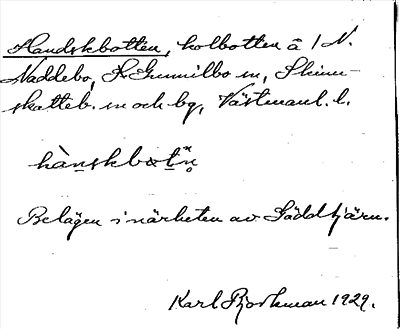 Handskbotten, kolbotten å / N.
Naddebo, S. Gunnilbo sn, Skinn-
skatteb. sn och bg, Västmanl. l.
hànskbòtn̥
Belägen i närheten av Säddtjärn.
Karl Björkman 1929.